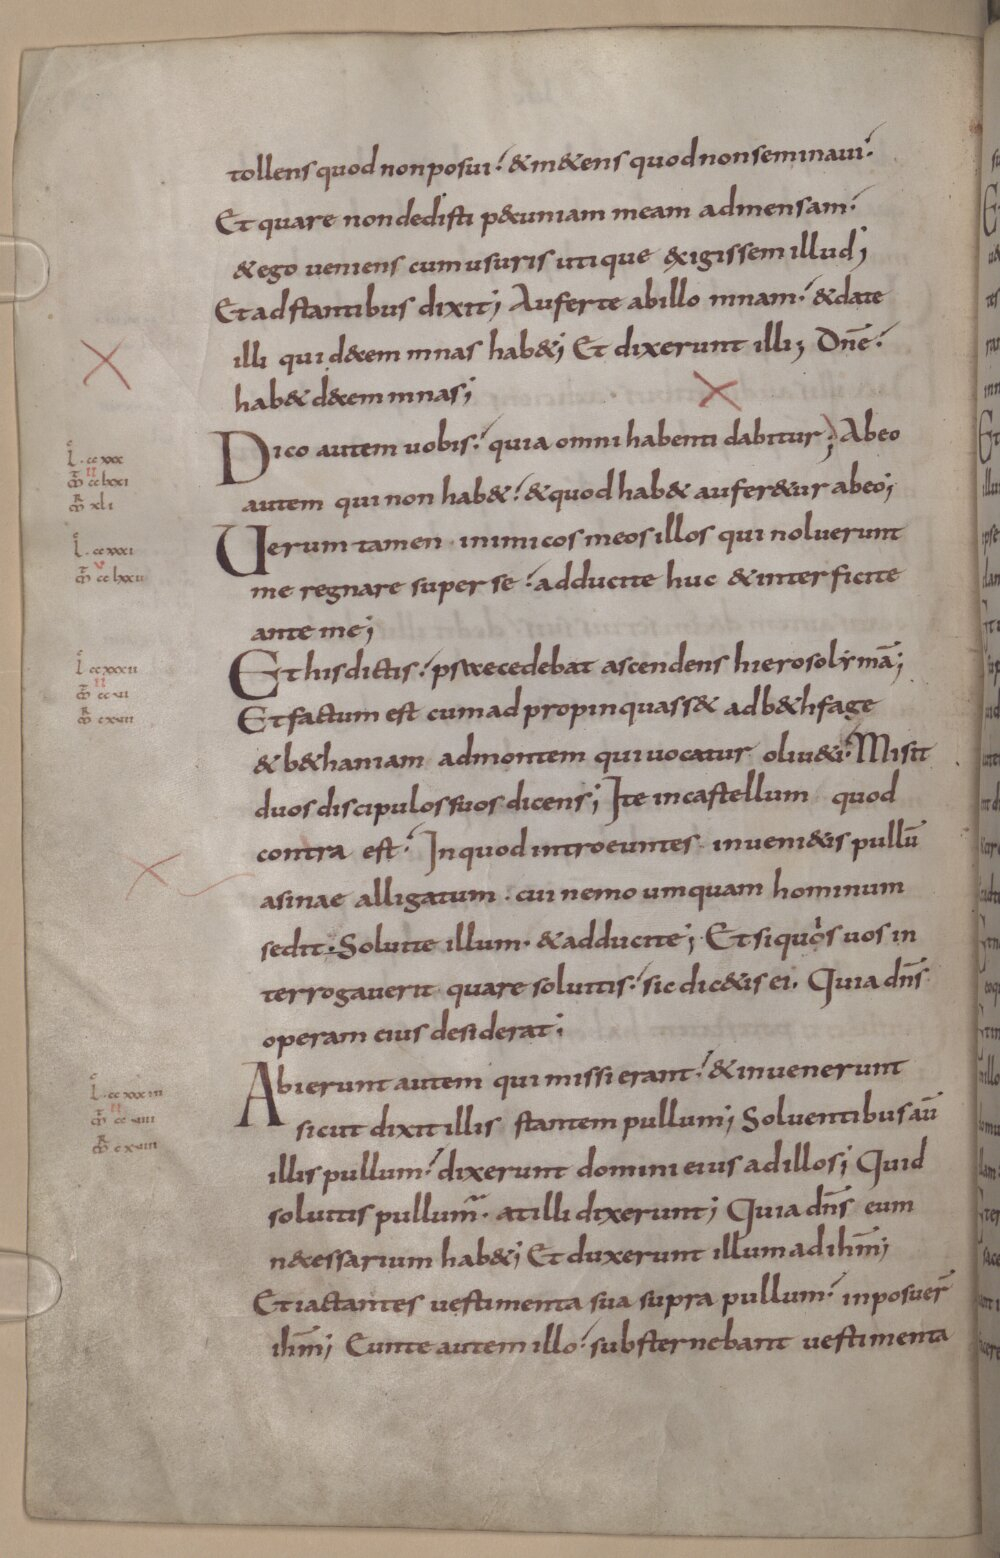 tollens quod non posui. & m&ens quod non seminaui.
Et quare non dedisti p&cuniam meam ad mensam.
& ego ueniens cum usuris utique exigissem illud;
Et adstantibus dixit; Auferte ab illo mnam. & date
illi qui decem mnas hab&; Et dixerunt illi; Dn̄e.
hab& decem mnas;
Dico autem uobis. quia omni habenti dabitur; Ab eo
autem qui non hab&. & quod hab& aufer&ur ab eo;
Uerum tamen inimicos meos illos qui noluerunt
me regnare super se. adducite huc & interficite
ante me;
Et his dictis. praecedebat ascendens hierosolymā;
Et factum est cum adpropinquass& ad b&hfage
& b&haniam ad montem qui uocatur oliu&i. Misit
duos discipulos suos dicens; Ite in castellum quod
contra est. In quod introeuntes. inueni&is pullū
asinae alligatum. cui nemo umquam hominum
sedit. Soluite illum. & adducite; Et si quis uos in
terrogauerit quare soluitis. sic dic&is ei. Quia dn̄s
operam eius desiderat;
Abierunt autem qui missi erant. & inuenerunt
sicut dixit illis stantem pullum; Soluentibus aū
illis pullum. dixerunt domini eius ad illos; Quid
soluitis pullum. at illi dixerunt; Quia dn̄s eum
necessarium hab&; Et duxerunt illum ad ihm̄;
Et iactantes uestimenta sua supra pullum. inposuer̄
ihm̄; Eunte autem illo. substernebant uestimenta
L. cc xxx
II
cc lxxi
xli
L. cc xxxi
V
cc lxxii
L cc xxxii
II
cc ui
c xuii
L. cc xxxiii
II
cc uiiii
c xuiii